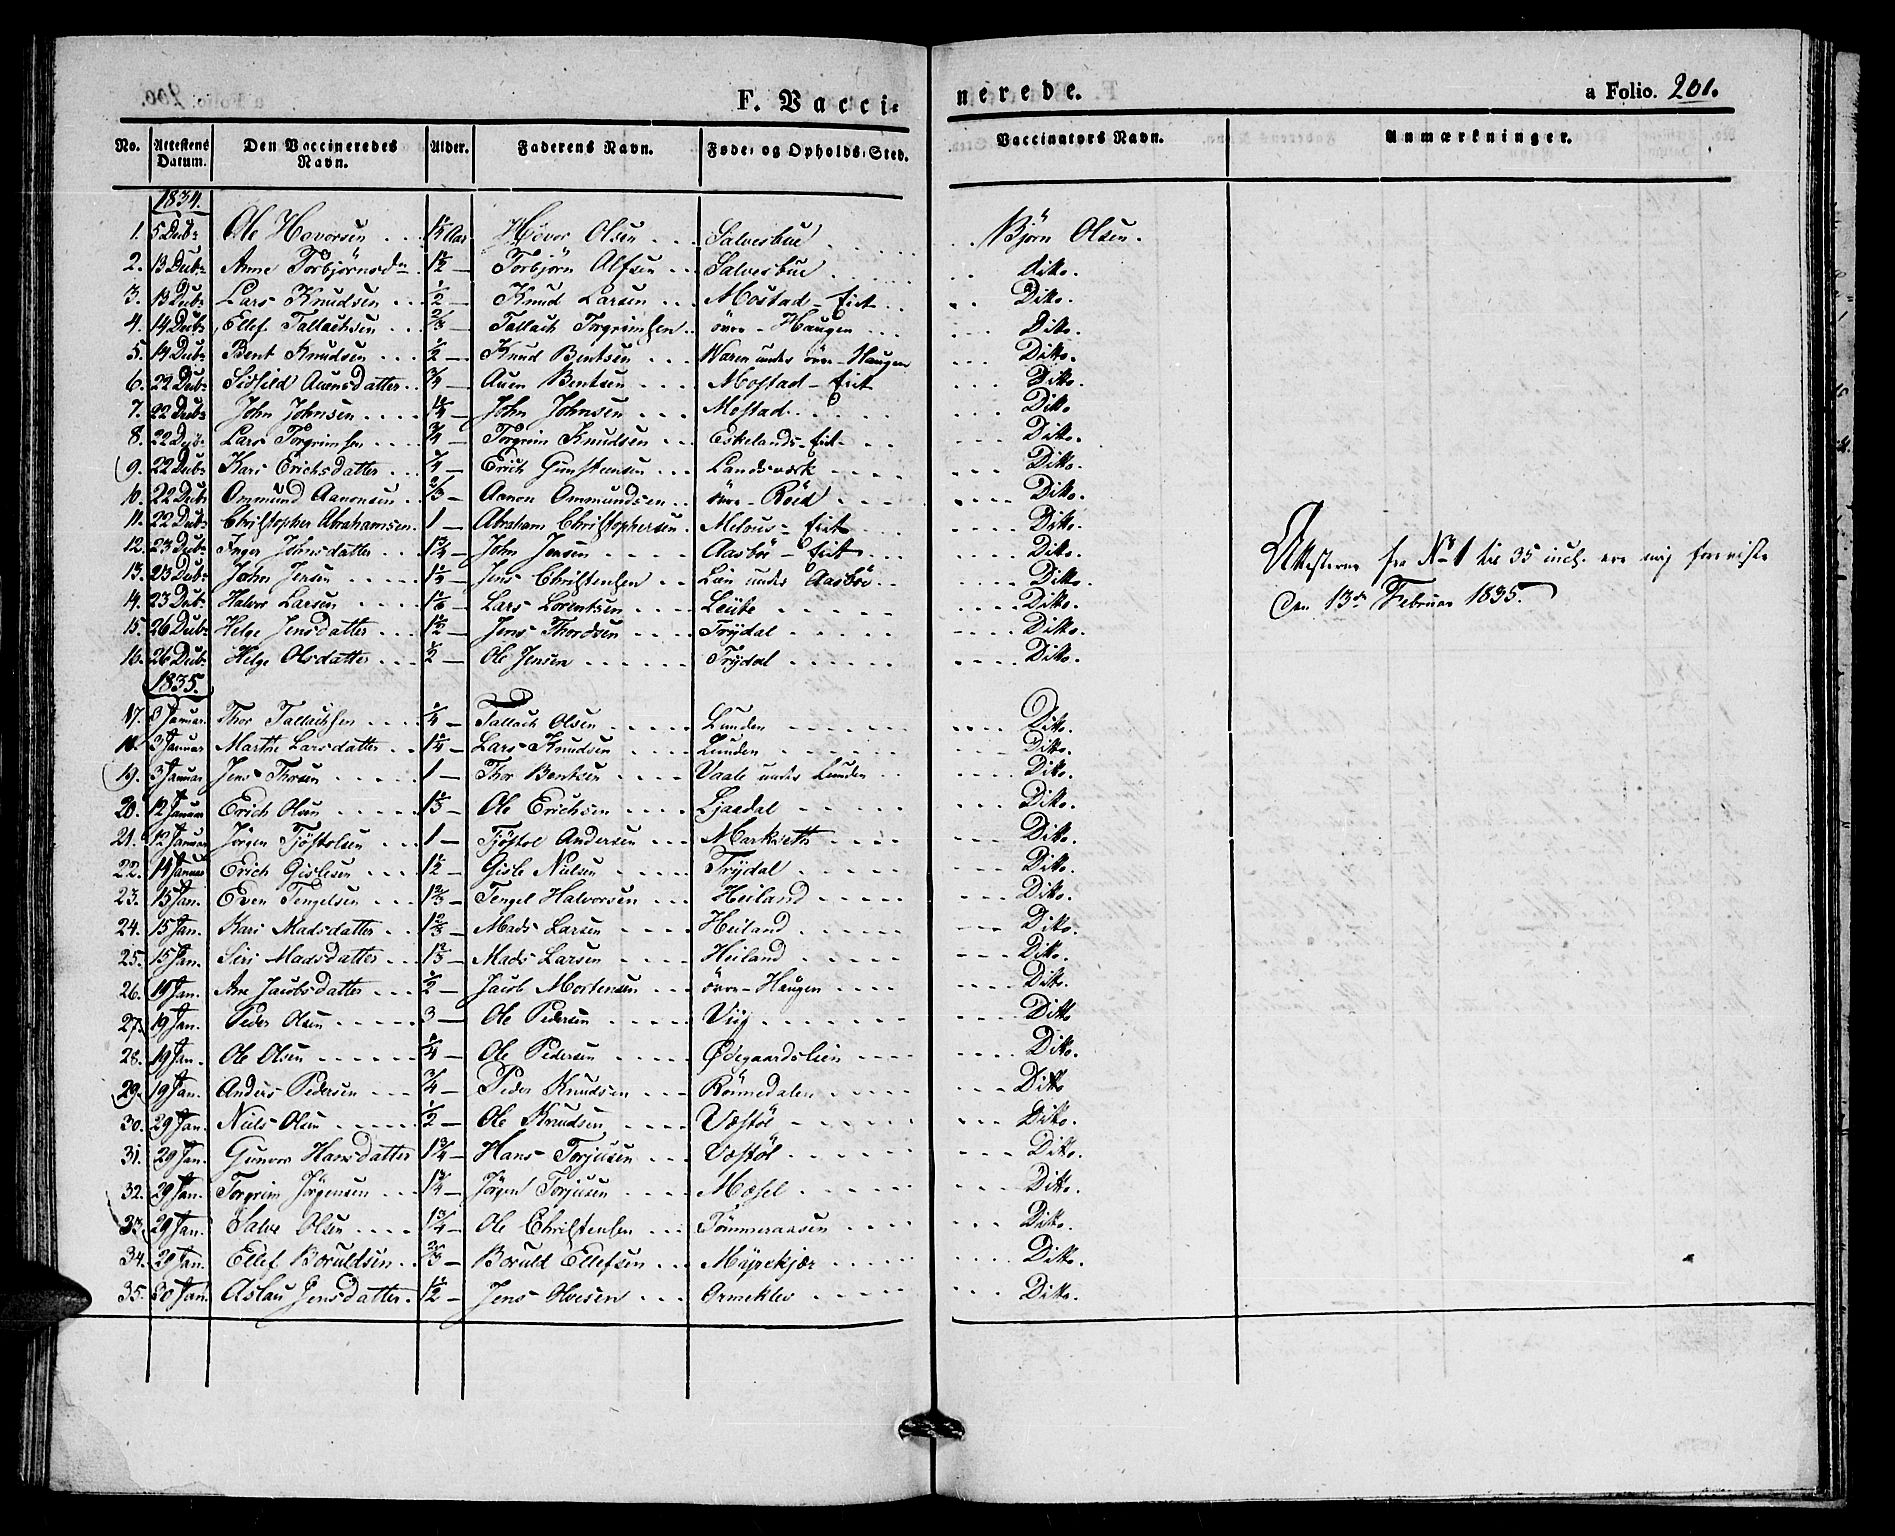 F. Vacci-
nerede.
a Folio. 201.
No. Attestens Datum. Den Vaccineredes Navn. Alder. Faderens Navn. Føde- og Opholds-Sted. Vaccinators Navn. Anmærkninger.
1834.
1. 5 Dcbr Ole Hovorsen 1¼ Aar Høvor Olsen Salvesbue Björn Olsen.
2. 13 Dcbr Anne Torbjörnsdtr 1½ — Torbjörn Alfsen Salvesbue Ditto.
3. 13 Dcbr Lars Knudsen ½ — Knud Larsen Mostad-Eiet Ditto.
4. 14 Dcbr Ellef Tallachsen 2/3 — Tallach Torgrimsen övre-Haugen Ditto.
5. 14 Dcbr Bent Knudsen ½ — Knud Bentsen under övre-Haugen Ditto.
6. 22 Dcbr Auensdatter ¾ — Auen Bentsen Mostad-Eiet Ditto.
7. 22 Dcbr John Johnsen 1¼ — John Johnsen Mostad Ditto.
8. 22 Dcbr Lars Torgrimsen ¾ — Torgrim Knudsen Eskelands-Eiet Ditto.
9. 22 Dcbr Kari Erichsdatter ¼ — Erich Gunstensen Landsværk Ditto.
10. 22 Dcbr Ommund Aanonsen 2/3 — Aanon Ommundsen övre-Röed Ditto.
11. 22 Dcbr Christopher Abrahamsen 1 — Abraham Christophersen Eiet Ditto.
12. 23 Dcbr Inger Johnsdatter 1¾ — John Jensen Aasbö-Eiet Ditto.
13. 23 Dcbr John Jensen 1¼ — Jens Christensen Lien under Aasbö Ditto.
14. 23 Dcbr Halvor Larsen Lars Lorentsen Ditto.
15. 26 Dcbr Helge Jensdatter 1½ — Jens Thordsen Trydal Ditto.
16. 26 Dcbr Helge Olsdatter ½ — Ole Jensen Trydal Ditto.
Attesterne fra No 1 til 35 incl. ere mig foreviste
den 13de Februar 1835.
1835.
17. 3 Januar Thor Tallachsen ¼ — Tallach Olsen Lunden Ditto.
18. 3 Januar Marthe Larsdatter 1¼ — Lars Knudsen Lunden Ditto.
19. 3 Januar Jens Thorsen 1 — Thor Bentsen Vaale under Lunden Ditto.
20. 12 Januar Erich Olsen 1⅓ — Ole Erichsen Ljaadal Ditto.
21. 12 Januar Jörgen Tjöstolsen 1 — Tjöstol Andersen Ditto.
22. 14 Januar Erich Gislesen 1½ — Gisle Nielsen Trydal Ditto.
23. 15 Jan. Even Tengelsen 1⅔ — Tengel Halvorsen Heiland Ditto.
24. 15 Jan. Kari Madsdatter 1⅔ — Mads Larsen Heiland Ditto.
25. 15 Jan. Siri Madsdatter 1⅔ — Mads Larsen Heiland Ditto.
26. 19 Jan. Ane Jacobsdatter ½ — Jacob Mortensen övre-Haugen Ditto.
27. 19 Jan. Peder Olsen 3 — Ole Pedersen Viig Ditto
28. 19 Jan. Ole Olsen ¾ — Ole Pedersen Ødegaardslien Ditto.
29. 19 Jan. Anders Pedersen ¾ — Peder Knudsen Rönnedalen Ditto
30. 29 Jan. Niels Olsen ½ — Ole Knudsen Væstöl Ditto.
31. 29 Jan. Gunvor Hansdatter 1¾ — Hans Torjusen Væstöl Ditto.
32. 29 Jan. Torgrim Jörgensen 1¼ — Jörgen Torjusen Mæsel Ditto.
33. 29 Jan. Salve Olsen 1¾ — Ole Christensen Tömmeraasen Ditto.
34. 29 Jan. Ellef Boruldsen Boruld Ellefsen Myrekjær Ditto.
35. 30 Jan. Aslau Jensdatter 1½ — Jens Olvesen Ormeklev Ditto.